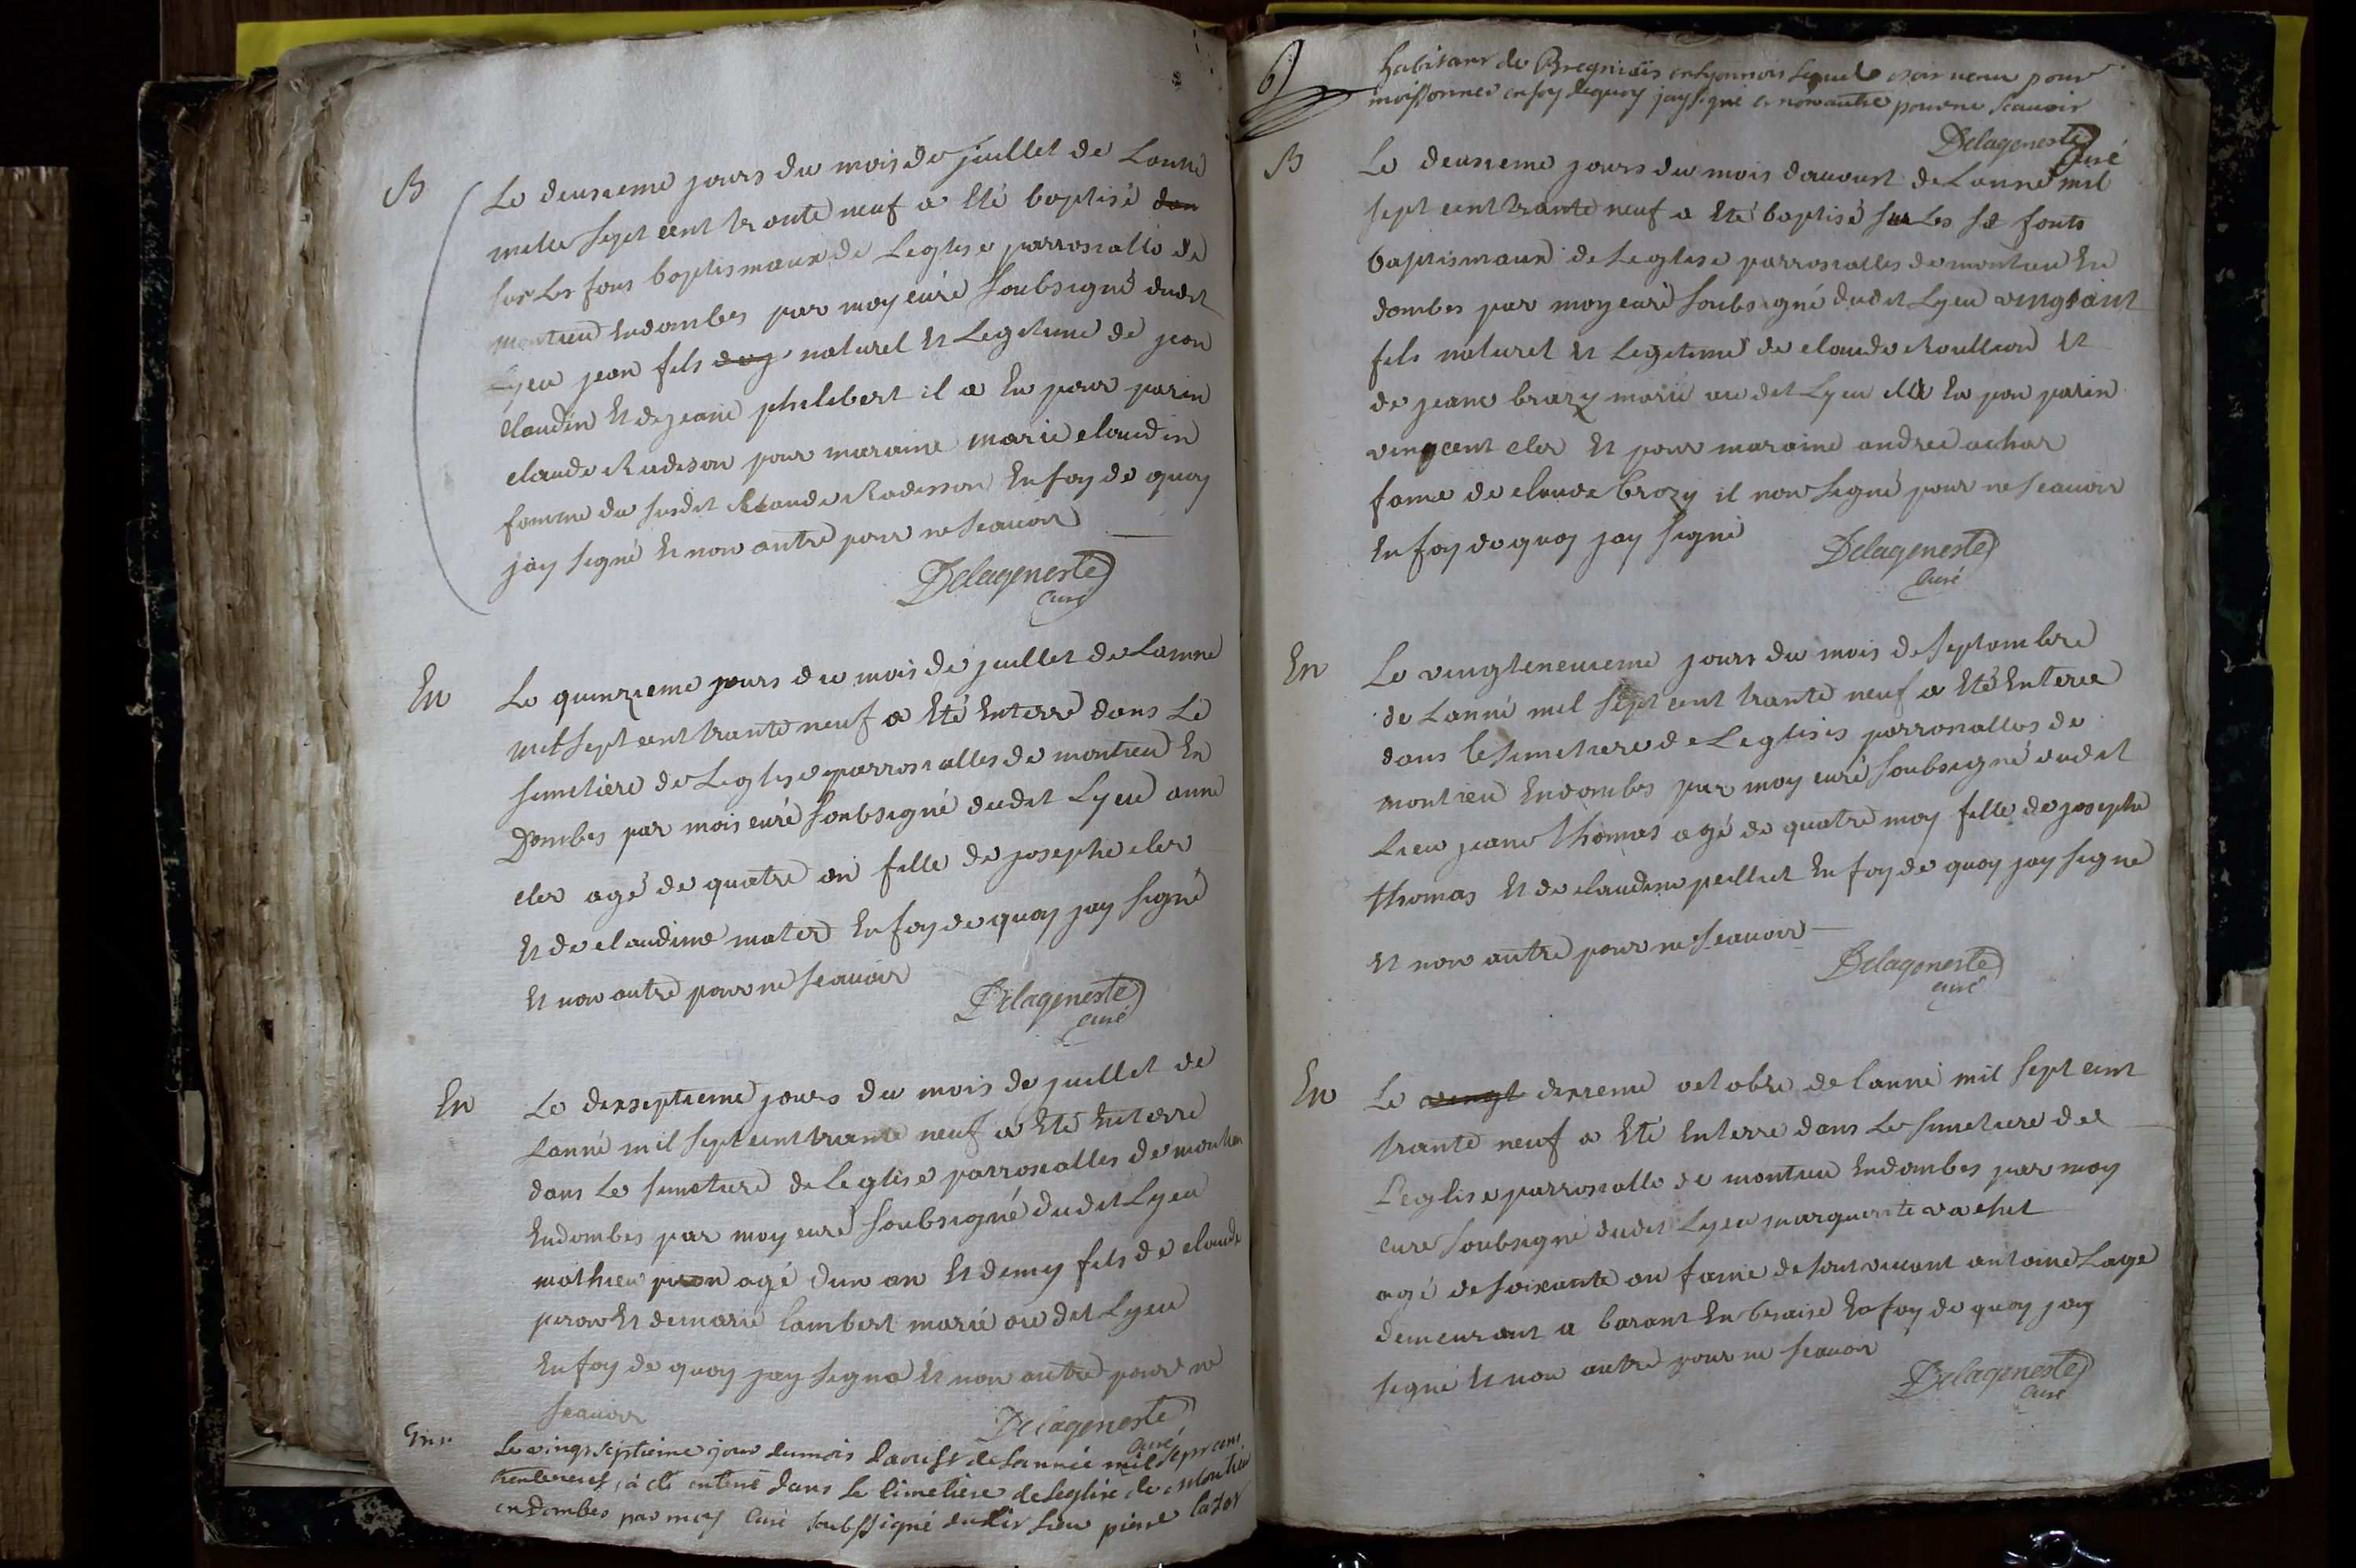 B
Le deusieme jours du mois de juillet de Lanné
mille sept cent trante neuf a Eté baptisé dan
sur Les fons baptismaux de Leglise parrosialle de
montieu Endombes par moy curé soubsigné dudit
Lyeu jean fils de j naturel Et Legitime de jean
claudin Et de jeane philebert il a Eu pour parin
claude Radison pour maraine marie claudin
famme du susdit Claude Radisson En foy de quoy
jay signé Et non autre pour ne scauoir
Delageneste
curé
En
Le quinzieme jours du mois de juillet de Lanne
mil sept cent trante neuf a Eté Enterré dans Le
simetiere de Leglise parrosialles de montieu En
Dombes par mois curé soubsigné dudit Lyeu anne
cler agé de quatre an fille de josephe cler
Et de claudine mater En foy de quoy jay signé
Et non autre pour ne scauoir
Delageneste
curé
En
Le dixseptieme jours du mois de juillet de
Lanné mil sept cent trante neuf a Eté Enterré
dans Le simetiere de Leglise parrosialles de montieu
Endombes par moy curé soubsigné dudit Lyeu
mathieu piron agé dun an Et demy fils de claude
piron Et de marie lambert marié au dit Lyeu
En foy de quoy jay signé Et non autre pour ne
scauoir
Delageneste
curé
Le vingt septieme jour du mois daoust de Lannée mil sept cent
trenteneuf, a été enterré dans le Cimetiere de Leglise de Montieu
en Dombes par moy Curé soubssigné dudit Lieu pierre
6
habitant de Bregniais en Lyonnois Lequel etoit venu pour
moissonner en foy dequoy jay signé et non autre pour ne scauoir
Delageneste
Curé
B
Le deusieme jours du mois dauoust de Lanné mil
sept cent trante neuf a Eté baptisé sur Les st fonts
baptismaux de Leglise parrosialles de montieu En
dombes par moy curé soubsigné dudit Lyeu vingsaint
fils naturel Et Legitime de claude Roullion Et
de jeane brazy marié au dit Lyeu il a Eu pou parin
vingcent cler Et pour maraine andree achar
fame de claude brozy il non signé pour ne scauoir
En foy de quoy jay signé
Delageneste
Curé
En
Le vingteneuieme jours du mois de septambre
de Lanné mil sept cent trante neuf a Eté Enteree
dans le simetiere de Leglisis parrosialles de
montieu Endombes par moy curé soubsigné dudit
Lieu jeane thomas agé de quatre moy fille de josephe
thomas Et de claudine peillet En foy de quoy jay signé
Et non autre pour ne scauoir
Delageneste
curé
En
Le vingt dixieme octobre de lanné mil sept cent
trante neuf a Eté Enterré dans Le simetiere de
Leglise parrosialle de montieu Endombes par moy
curé soubsigné dudit Lyeu marguerite vachet
agé de soixante an fame de sont viuant antoine Lage
demeurant a barant En braise En foy de quoy jay
signé Et non autre pour ne scauoir
Delageneste
Curé